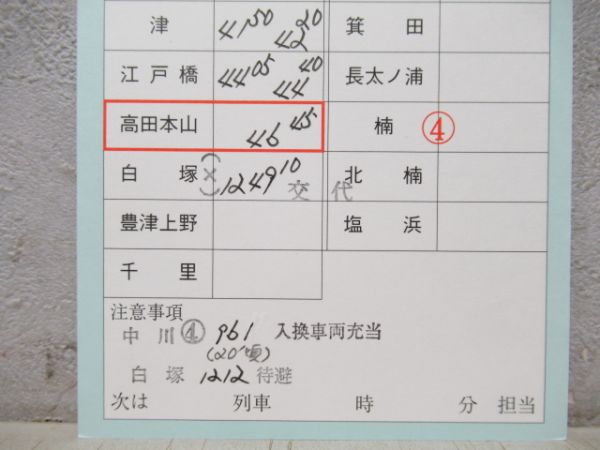 津 41 50 42 20 箕田
江戸橋 44 05 44 40 長太ノ浦
高田本山 46 45 楠 ④
白塚 (×) 1249 10 交代 北楠
豊津上野 塩浜
千里
注意事項
中川 ④ 961 入換車両充当
(20'頃)
白塚 1212 待避
次は 列車 時 分 担当